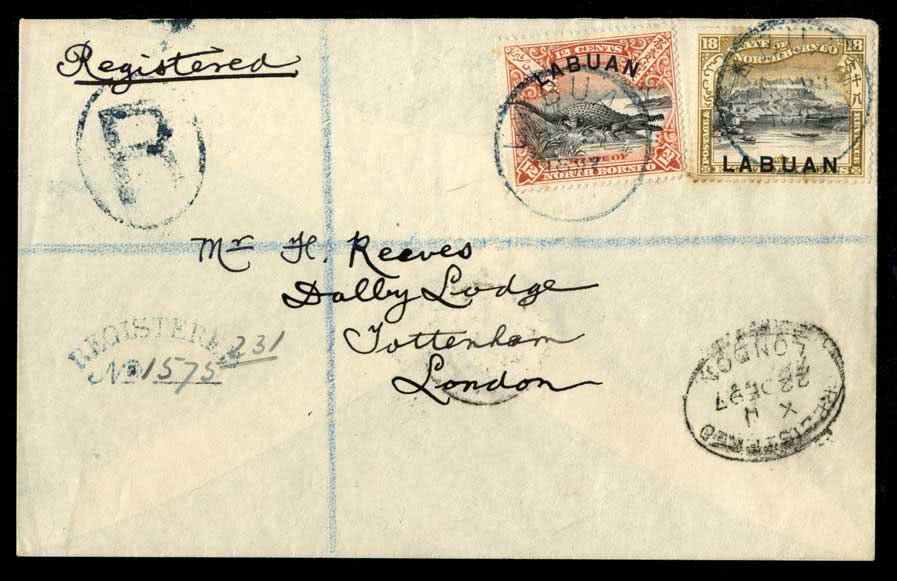 Registered
R
12 CENTS
LABUAN
STATE OF
NORTH BORNEO
12 12
18 STATE OF 18
NORTH BORNEO
十八
POSTAGE &
LABUAN
Mr H. Reeves
Dalby Lodge
Tottenham
London
REGISTERED
231
No 1575
LONDON
22 DE 97
X H
REGISTERED